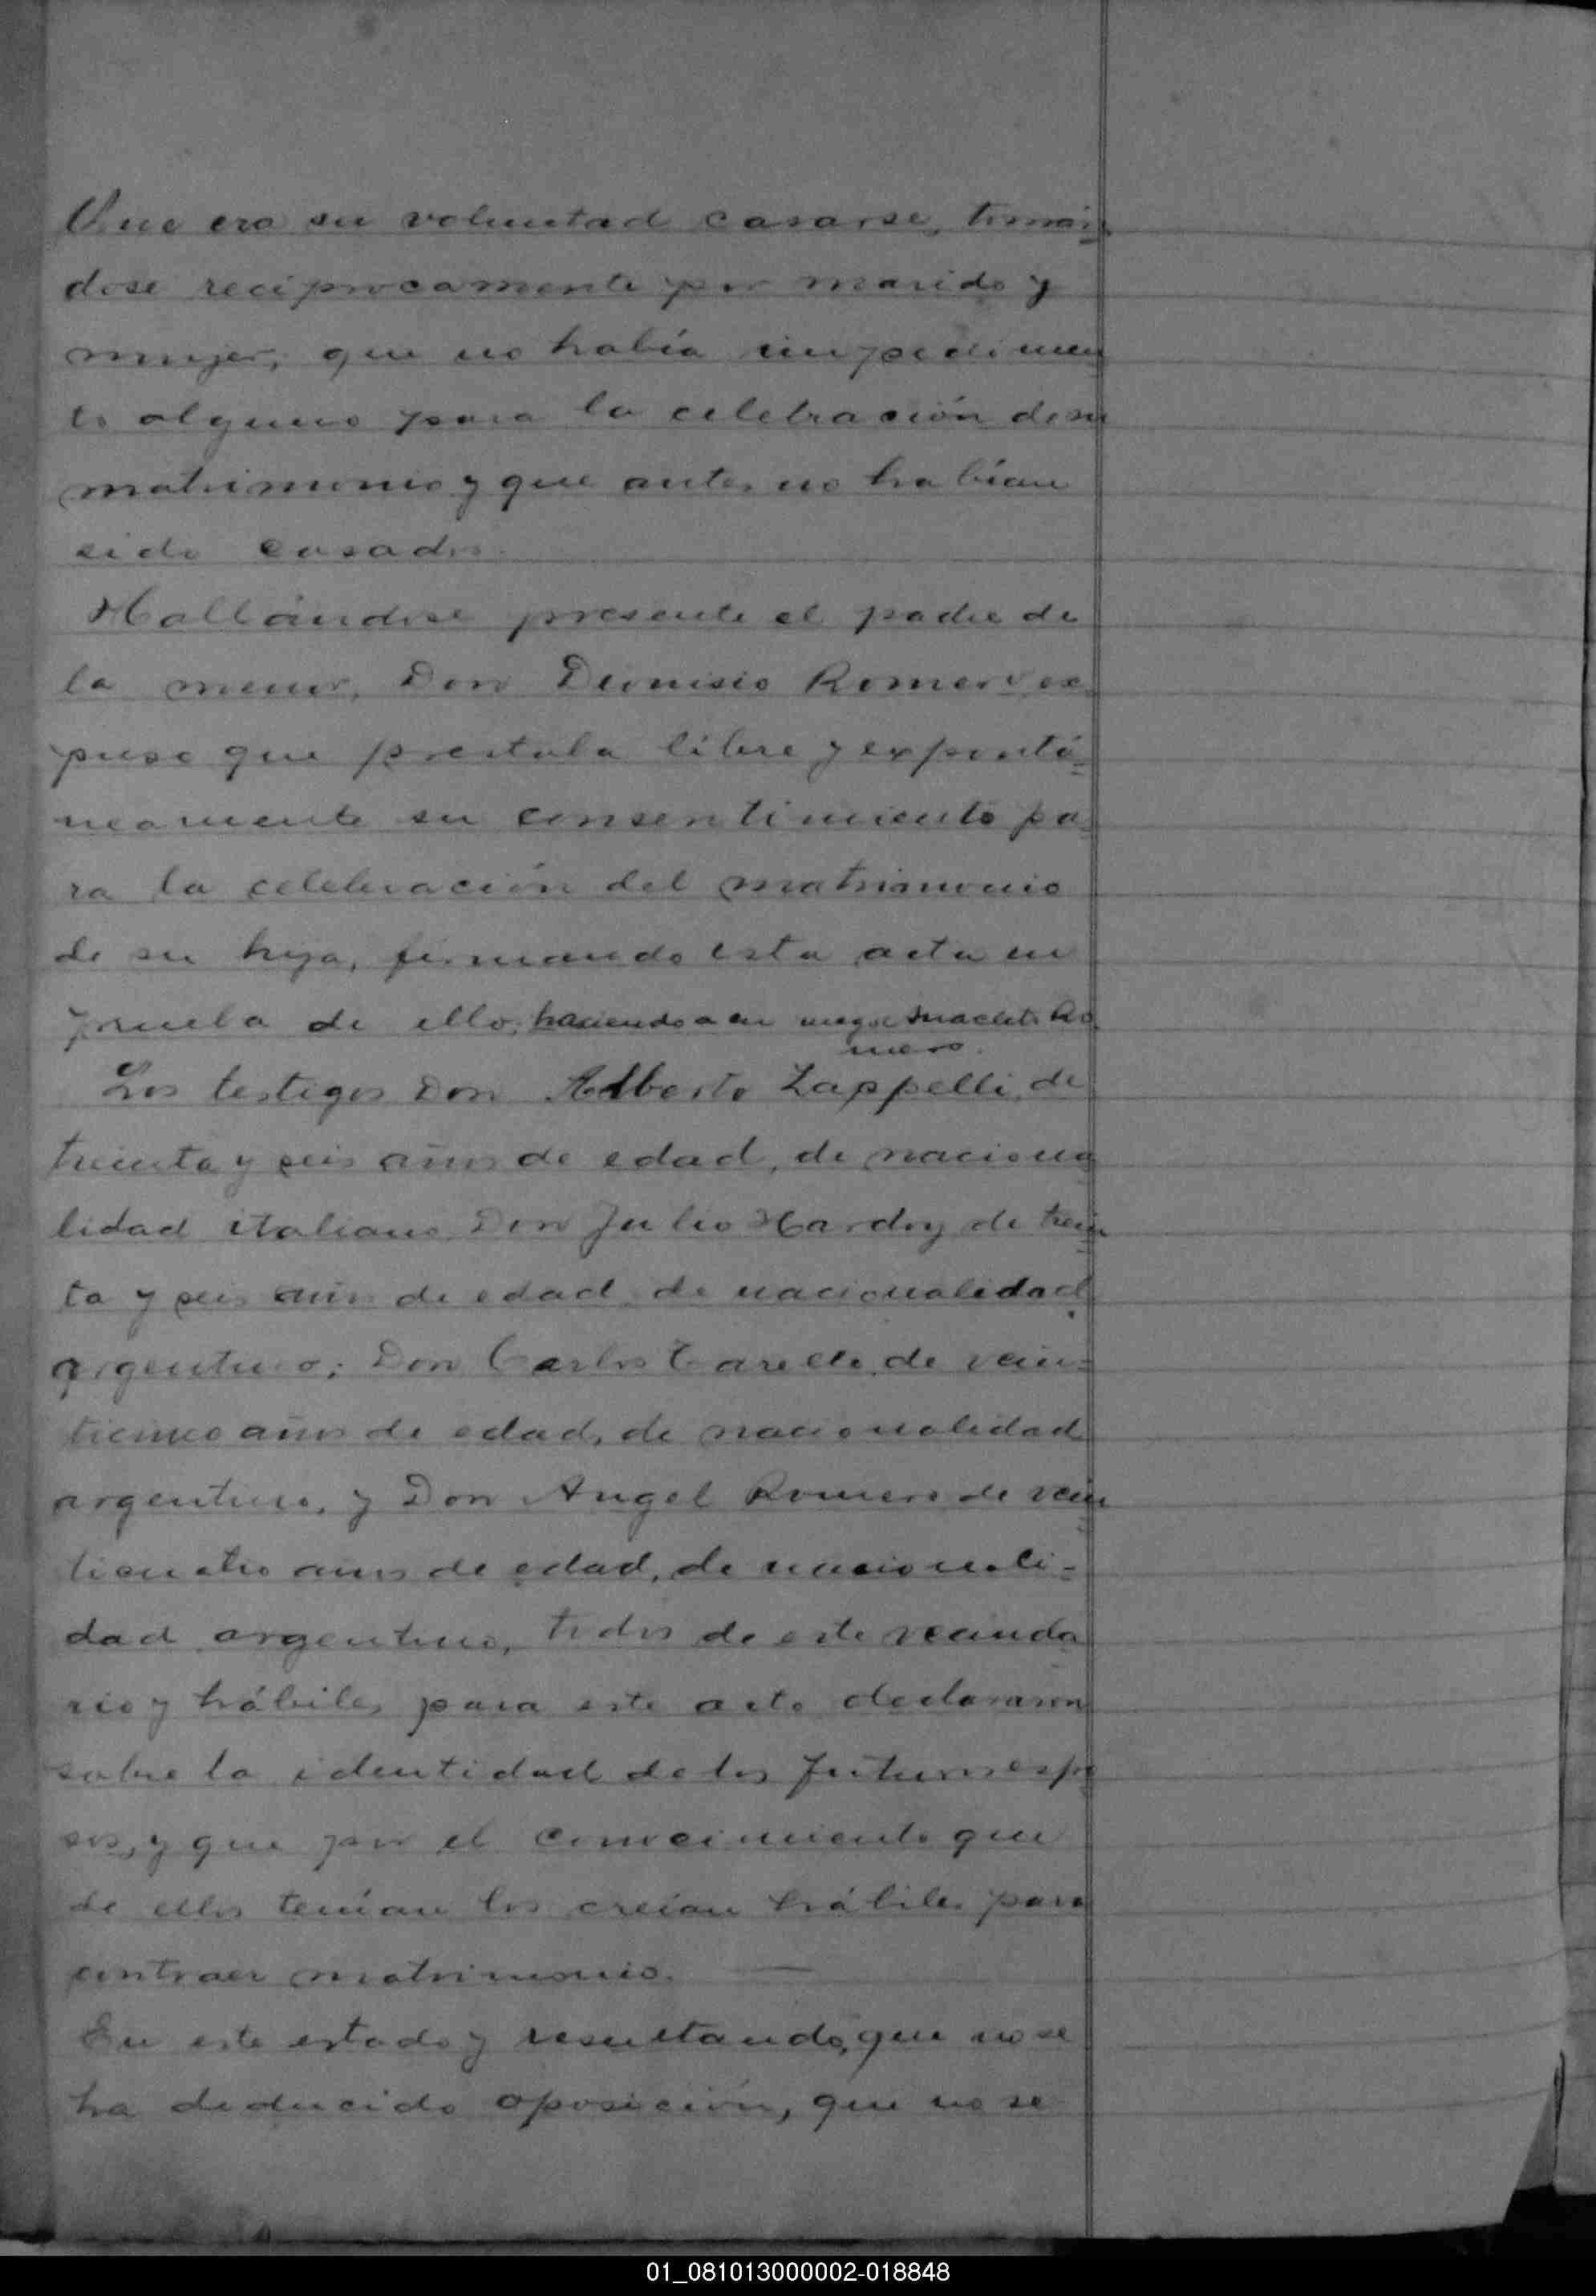 Que era su voluntad casarse, tomán
dose recíprocamente por marido y
mujer, que no había impedimen
to alguno para la celebración de su
matrimonio y que antes no habían
sido casados.
Hallándose presente el padre de
la menor, Don Dionisio Romero ex
puso que prestaba libre y expontá=
neamente su consentimiento pa
ra la celebración del matrimonio
de su hija, firmando esta acta en
prueba de ello, haciendo a su ruego Ro
mero.
Los testigos Don Alberto Zappelli, de
treinta y seis años de edad, de naciona
lidad italiano, Don Julio Hardoy de trein
ta y seis años de edad, de nacionalidad
argentino; Don Carlos de vein=
ticinco años de edad, de nacionalidad
argentino, y Don Angel Romero de vein
ticuatro años de edad, de nacionali-
dad argentino, todos de este vecinda
rio y hábiles para este acto declararon
sobre la identidad de los futuros espo
sos, y que por el conocimiento que
de ellos tenían los creían hábiles para
contraer matrimonio. —
En este estado y resultando, que no se
ha deducido oposición, que no se
01_081013000002-018848